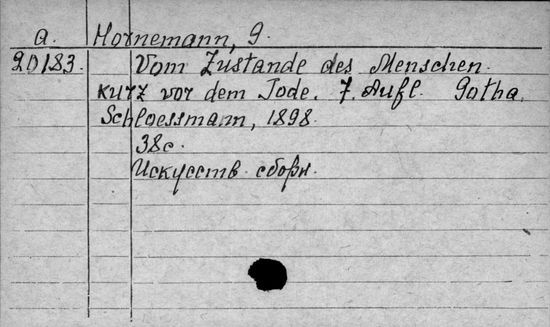 a. Hornemann, G.
20183. Vom Zustande des Menschen
kurz vor dem Tode. 7. Aufl. Gotha,
Schloessmann, 1898.
38с.
Искусств. сборн.